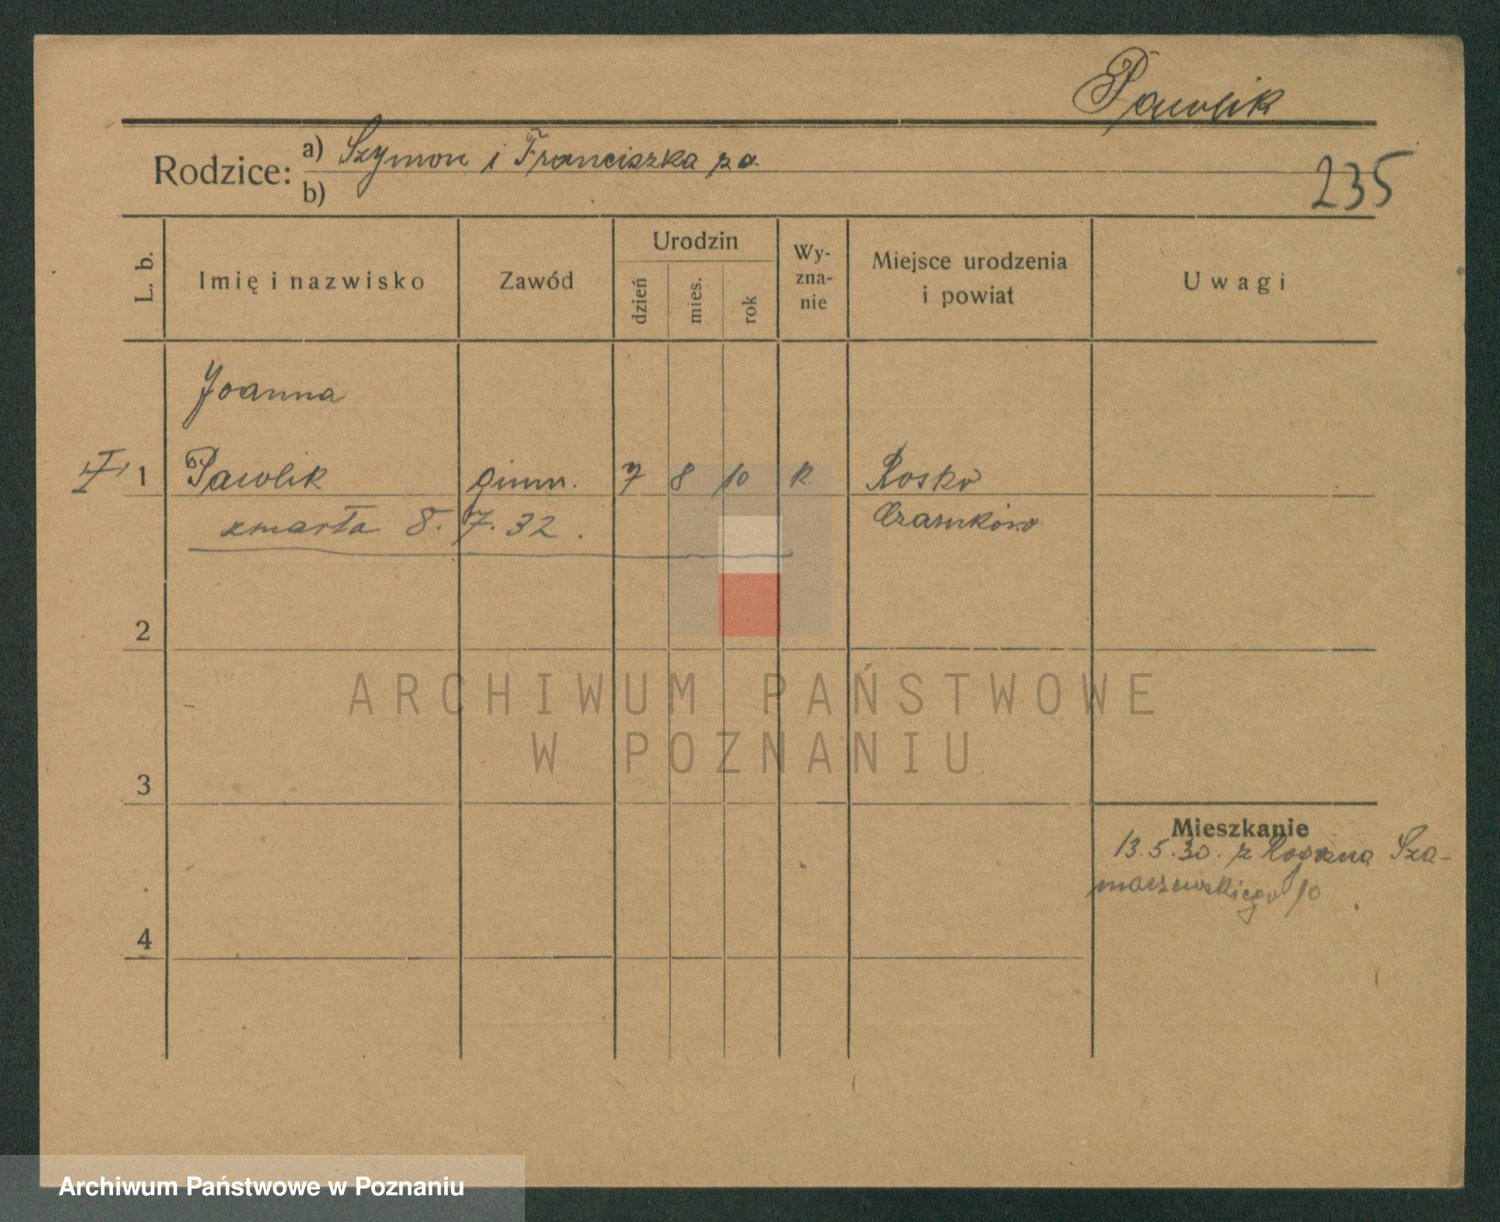 Pawlik
Rodzice: a) Szymon i Franciszka z d.
b)
235
L. b.
Imię i nazwisko
Zawód
Urodzin
dzień
mies.
rok
Wy-
zna-
nie
Miejsce urodzenia
i powiat
Uwagi
Joanna
1 Pawlik gimn. 7 8 10 k. Rosko
zmarła 8.7.32. Czarnków
2
3
4
Mieszkanie
13.5.30. z Rogoźna Sza-
marzewskiego 10
ARCHIWUM PAŃSTWOWE
W POZNANIU
Archiwum Państwowe w Poznaniu